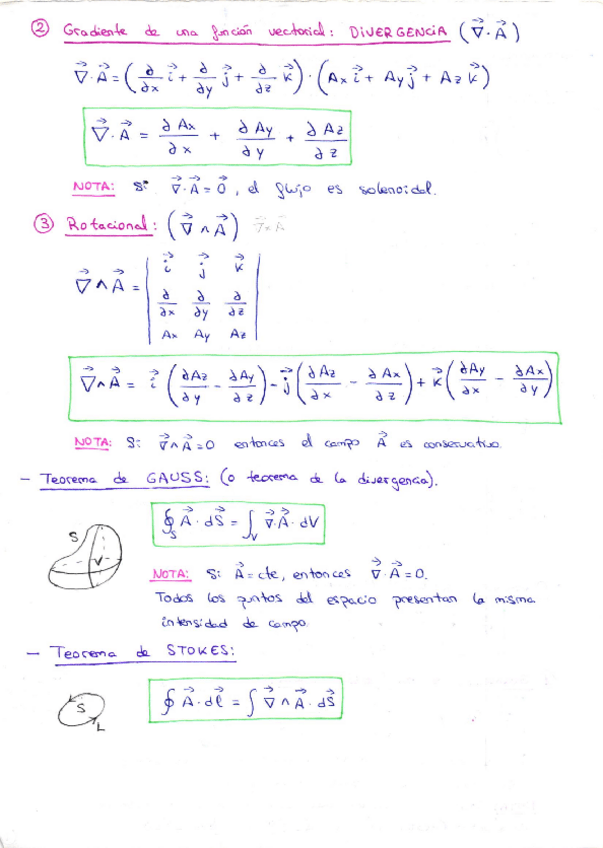 ② Gradiente de una función vectorial: DIVERGENCIA (∇⃗·A⃗)
∇⃗·A⃗ = (∂/∂x i⃗ + ∂/∂y j⃗ + ∂/∂z k⃗) · (Ax i⃗ + Ay j⃗ + Az k⃗)
∇⃗·A⃗ = ∂Ax/∂x + ∂Ay/∂y + ∂Az/∂z
NOTA: Si ∇⃗·A⃗ = 0⃗, el flujo es solenoidal.
③ Rotacional: (∇⃗∧A⃗) ∇⃗×A⃗
∇⃗∧A⃗ = | i⃗ j⃗ k⃗ |
| ∂/∂x ∂/∂y ∂/∂z |
| Ax Ay Az |
∇⃗∧A⃗ = i⃗ (∂Az/∂y - ∂Ay/∂z) - j⃗ (∂Az/∂x - ∂Ax/∂z) + k⃗ (∂Ay/∂x - ∂Ax/∂y)
NOTA: Si ∇⃗∧A⃗ = 0 entonces el campo A⃗ es conservativo.
- Teorema de GAUSS: (o teorema de la divergencia).
S V
∮_S A⃗·dS⃗ = ∫_V ∇⃗·A⃗·dV
NOTA: Si A⃗ = cte, entonces ∇⃗·A⃗ = 0.
Todos los puntos del espacio presentan la misma
intensidad de campo.
- Teorema de STOKES:
S L
∮ A⃗·dℓ⃗ = ∫ ∇⃗∧A⃗·dS⃗